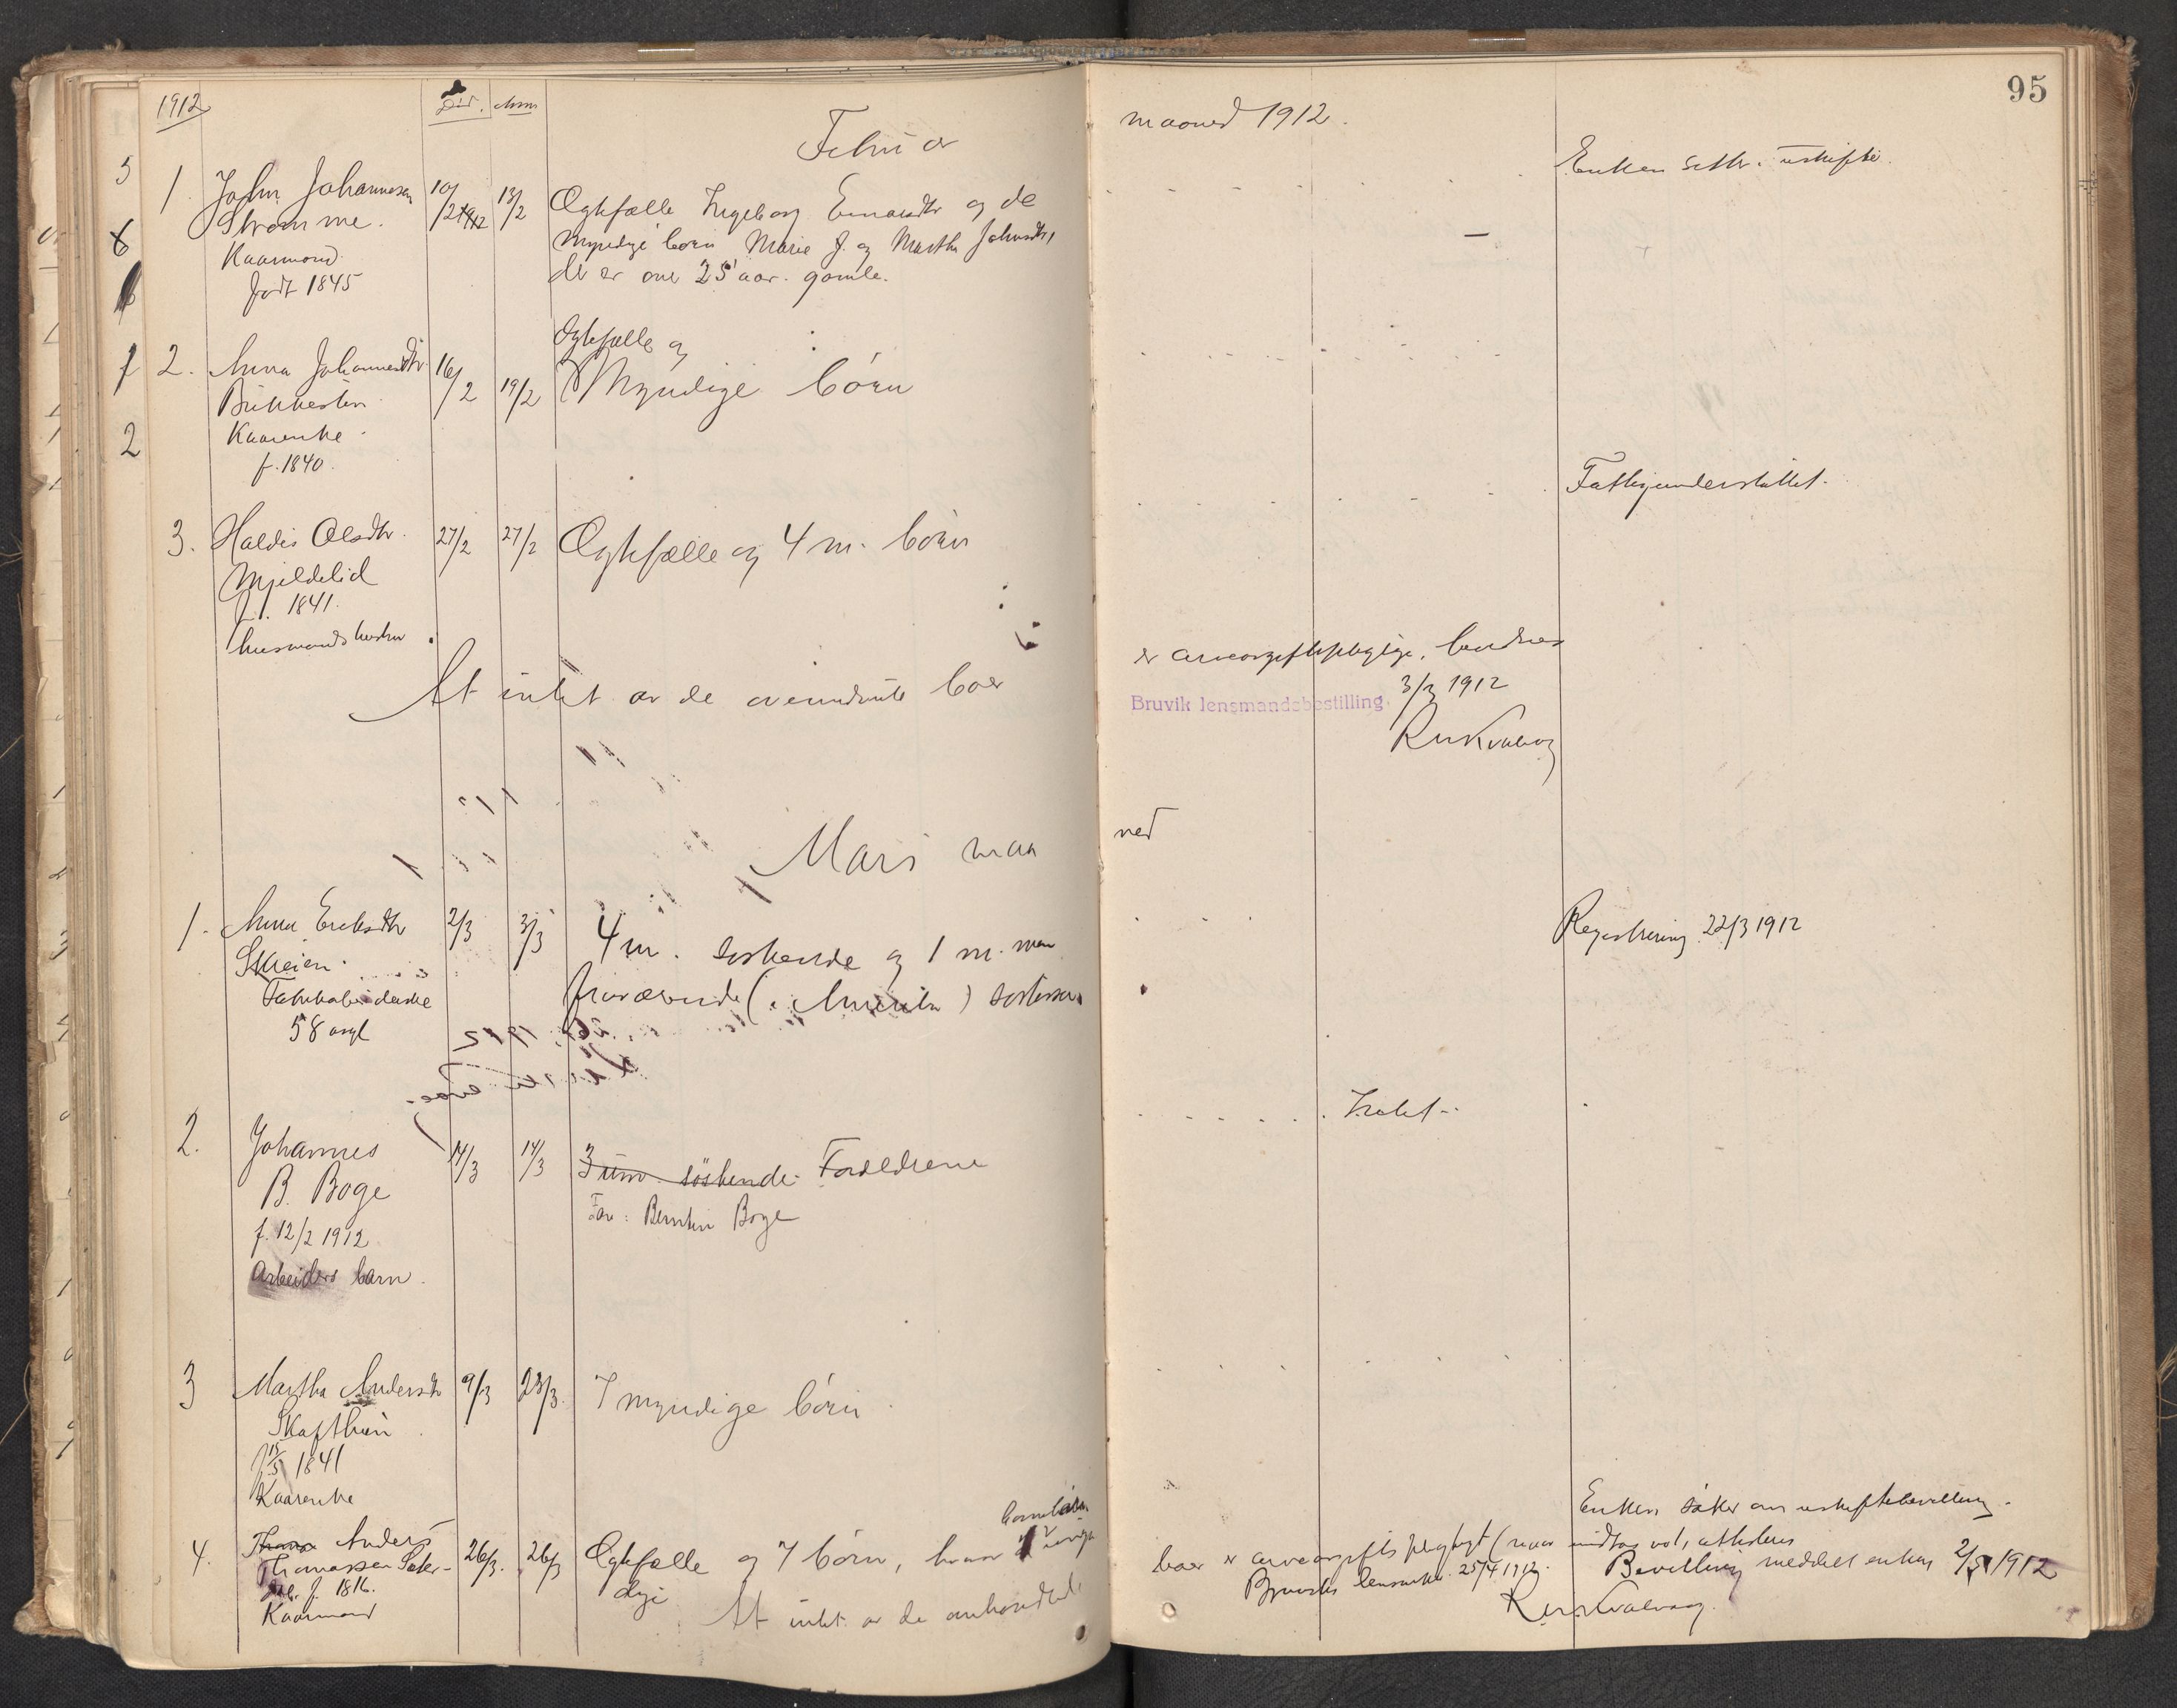 95
1912
Død. Anm
Februar
maaned 1912.
5
6
1
2
1. John Johannessen
Strømme.
Kaarmand
født 1845
10/2 1912
13/2
Ægtefælle Ingeborg og de
myndige børn Marie J. og Martha Johnsdtr,
der er over 25 aar gamle.
—
Enken sitter i uskifte.
2. Anna Johannesdtr
Kaarenke.
f. 1840.
16/2
19/2
Ægtefælle og
Myndige børn
Fattigunderstøttet.
3. Haldis Olsdtr.
Mjeldelid
f. 1841.
husmandshustru
27/2
27/2
Ægtefælle og 4 m. børn
At intet av de ovennævnte boer
er arveavgiftspligtige, bevidnes
Bruvik lensmandsbestilling 3/3 1912
Kvalvaag
Mars maa
ned
1. Anna Eriksdtr
Skreien.
Fabrikarbeiderske
58 aar gl
2/3
3/3
4 m. søskende og 1 m. men
fraværende (i Amerika) søstersøn
Registrering 22/3 1912
2. Johannes
B. Boge
f. 12/2 1912
Arbeiders barn.
14/3
14/3
3 um. søskende. Forældrene
Far: Berntin Boge
Intet.
3 Martha Andersdtr
Skafthun
f. 15/5 1841
Kaarenke
9/3
23/3.
7 myndige børn
4. Anders
Thomassen
f. 1816.
Kaarmand
26/3.
26/3
Ægtefælle og 7 børn, hvorav
Enken søker om uskiftebevilling.
At intet av de anhændte
boer er arveavgiftspligtigt attesteres
Bruviks lensmd. 25/4 1912.
Bevilling meddelt enken 2/5 1912
Kvalvaag.